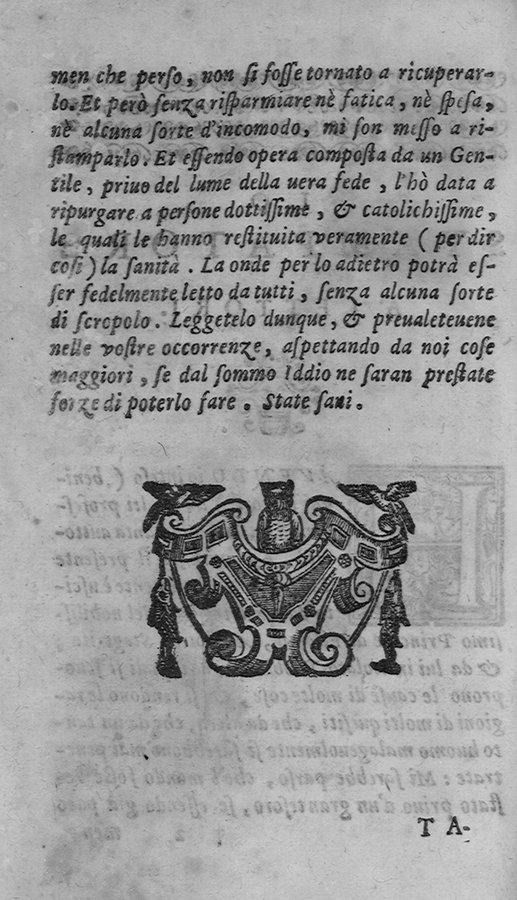 men che perso, non si fosse tornato a ricuperar-
lo. Et però senza risparmiare nè fatica, nè spesa,
nè alcuna sorte d'incomodo, mi son messo a ri-
stamparlo. Et essendo opera composta da un Gen-
tile, priuo del lume della uera fede, l'hò data a
ripurgare a persone dottissime, & catolichissime,
le quali le hanno restituita veramente ( per dir
cosi ) la sanità. La onde per lo adietro potrà es-
ser fedelmente letto da tutti, senza alcuna sorte
di scropolo. Leggetelo dunque, & preualeteuene
nelle vostre occorrenze, aspettando da noi cose
maggiori, se dal sommo Iddio ne saran prestate
forze di poterlo fare. State sani.
T A-